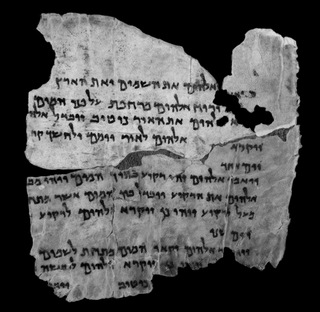 אלהים את השמים ואת הארץ
ורוח אלהים מרחפת על פני המים
אלהים את האור כי טוב ויבדל אל
אלהים לאור יומם ולחשך קר
ויקרא
יום אחד
ויאמר אלהים יהי רקיע בתוך המים ויהי מב
אלהים את הרקיע ויבדל בין המים אשר מתח
מעל לרקיע ויהי כן ויקרא אלהים לרקיע
יום שני
אלהים המים מתחת לשמים
ויקרא אלהים ליבשה